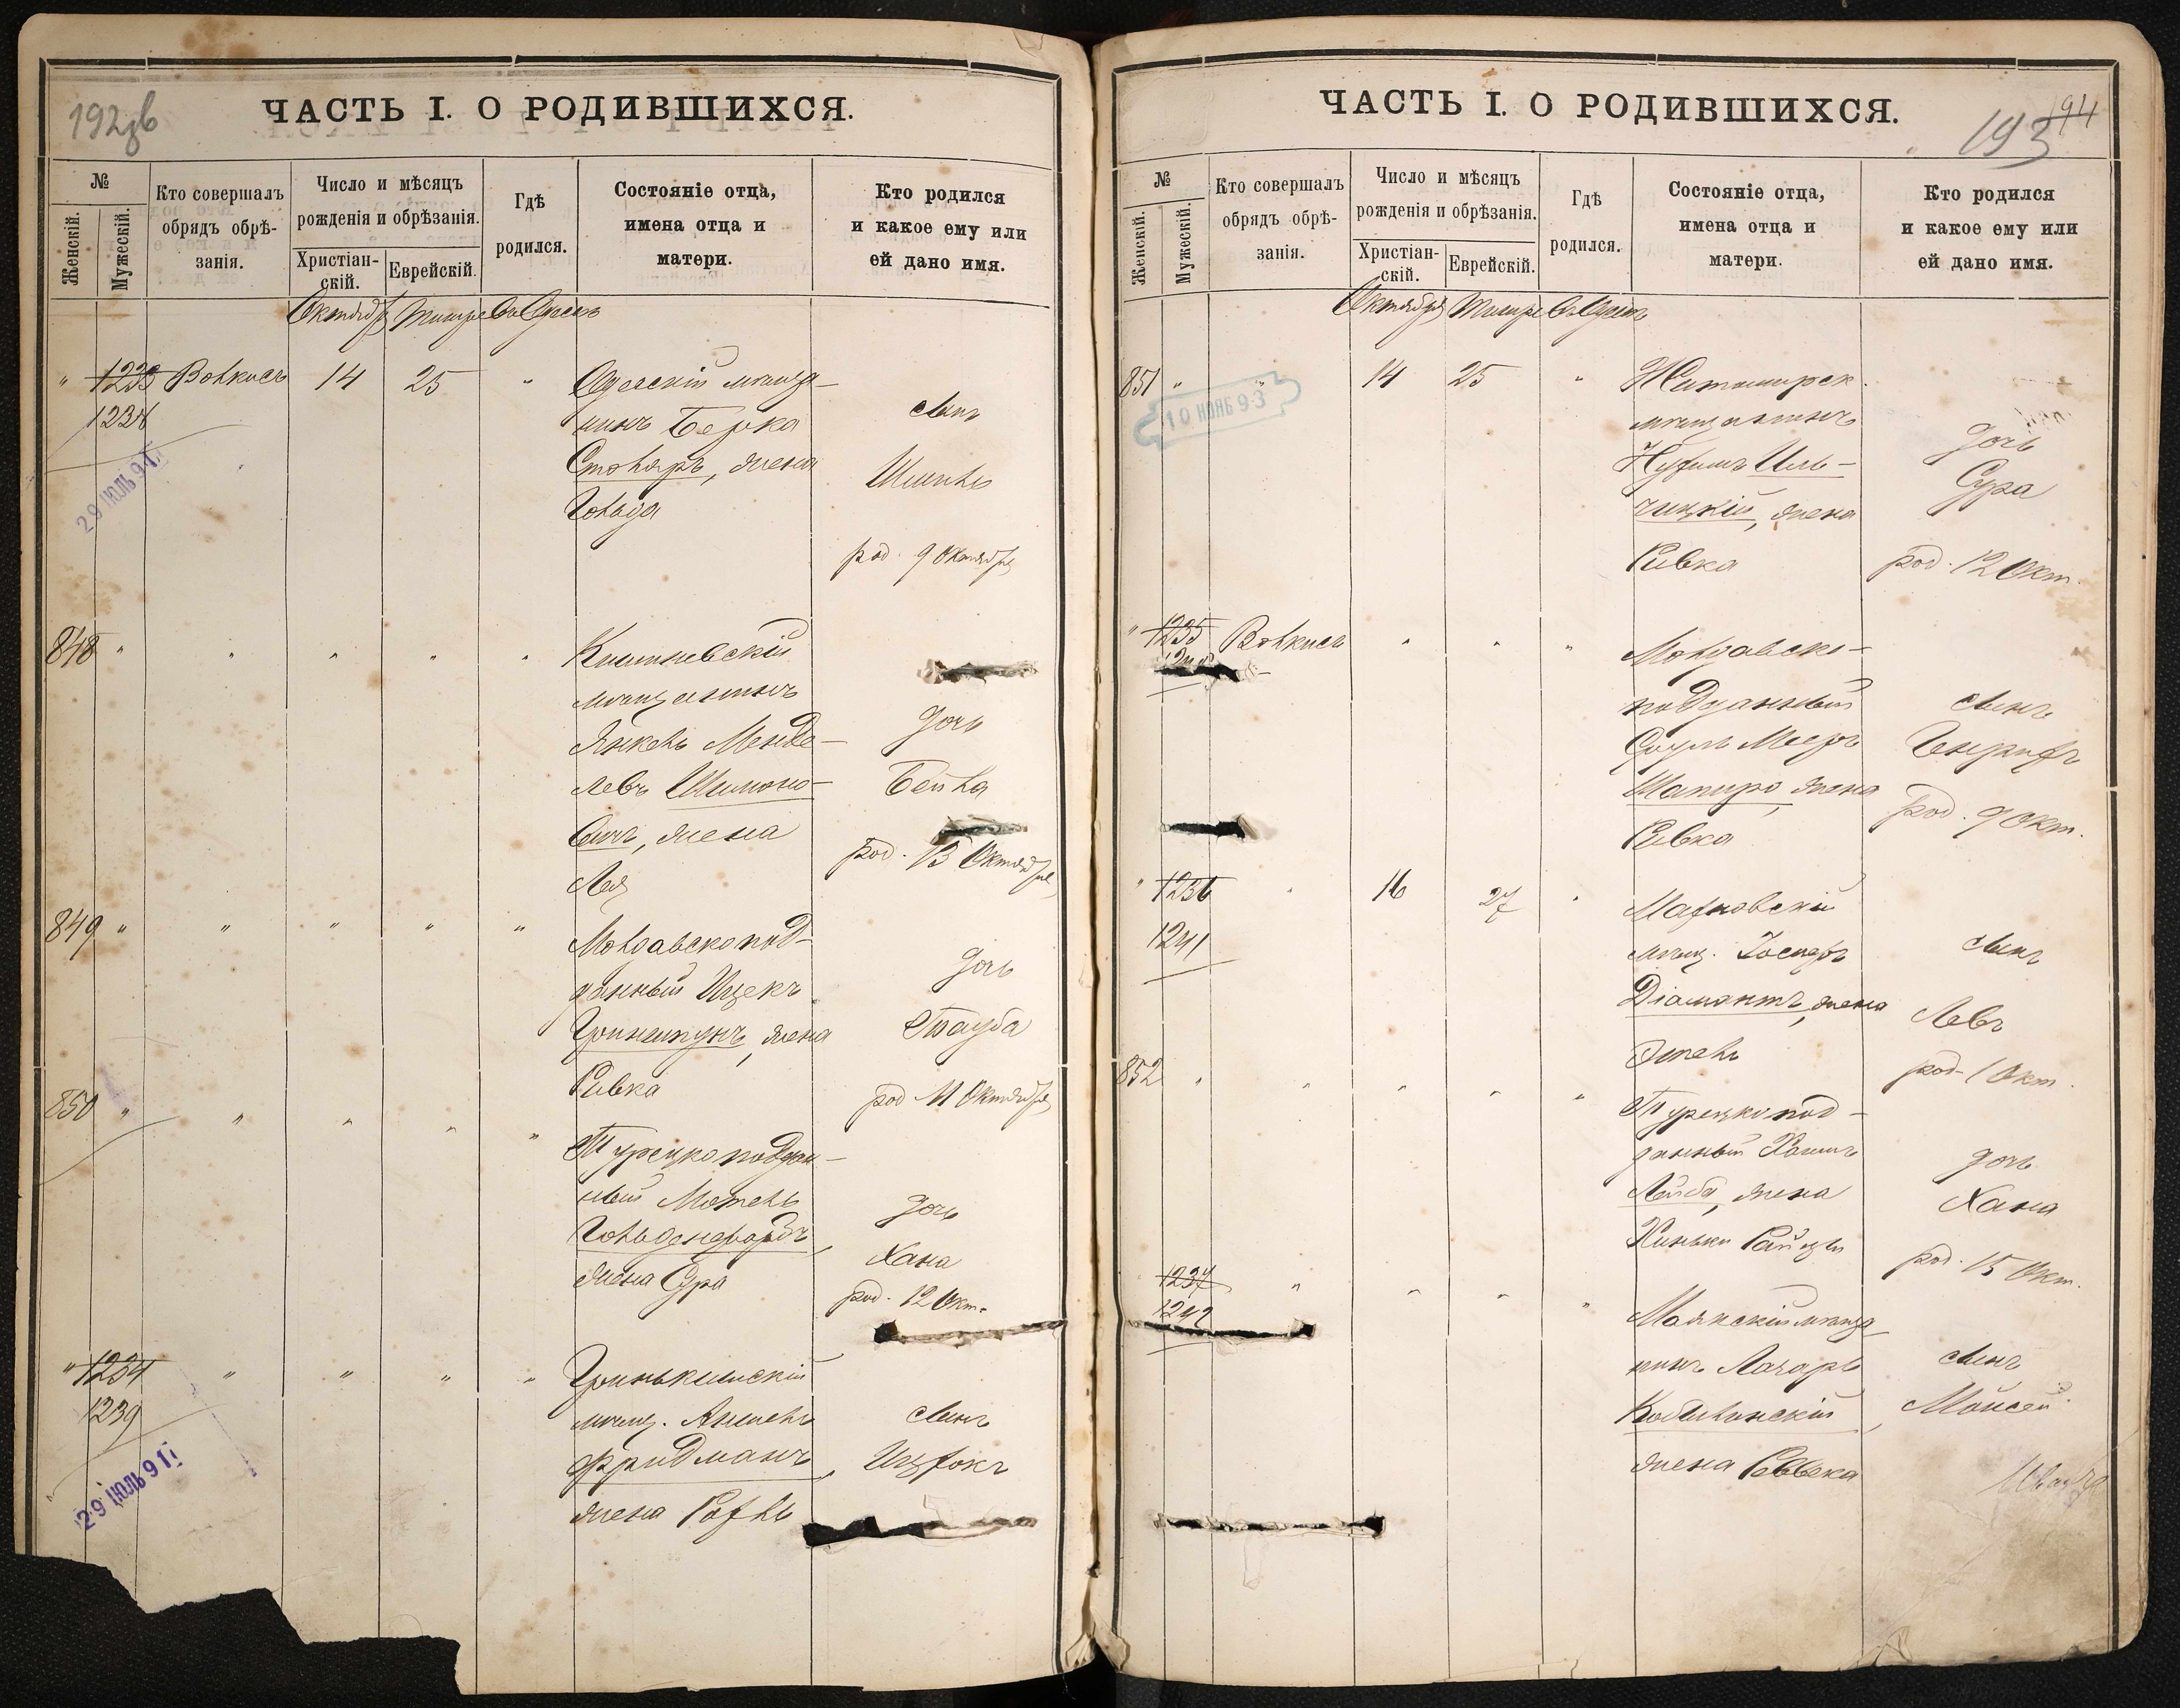 192об
ЧАСТЬ I. О РОДИВШИХСЯ.
№
Женскій.
Мужескій.
Кто совершалъ
обрядъ обрѣ-
занія.
Число и мѣсяцъ
рожденія и обрѣзанія.
Христіан-
скій.
Еврейскій.
Гдѣ
родился.
Состояніе отца,
имена отца и
матери.
Кто родился
и какое ему или
ей дано имя.
Октября Тишре Въ Одессѣ
" 1233 Волкисъ 14 25 " Одесскій мѣща-
1238
нинъ Берка
Столяръ, жена
Гольда
сынъ
Шмиль
род. 9 Октября
29 ІЮЛЬ 91
848 " " " " " Кишиневскій
мѣщанинъ
Янкель Менде-
левъ Шимоно-
вичъ, жена
Лея
дочь
Бейла
род. 13 Октября
849 " " " " " Молдавскопод-
данный Ицекъ
Гриншпунъ, жена
Ривка
дочь
Тауба
род 11 Октября
850 " " " " " Турецкоподдан-
ный Мотель
Гольденфарбъ,
жена Сура
дочь
Хана
род. 12 Окт.
" 1234 " " " " Гринькишскій
1239
мѣщ. Аншель
Фридманъ,
жена Рохль
сынъ
Ицхокъ
29 ІЮЛЬ 91
ЧАСТЬ I. О РОДИВШИХСЯ.
193
194
№
Женскій.
Мужескій.
Кто совершалъ
обрядъ обрѣ-
занія.
Число и мѣсяцъ
рожденія и обрѣзанія.
Христіан-
скій.
Еврейскій.
Гдѣ
родился.
Состояніе отца,
имена отца и
матери.
Кто родился
и какое ему или
ей дано имя.
Октября Тишре Въ Одессѣ
851 " " 14 25 " Житомирск.
мѣщанинъ
Нухимъ Иль-
чицкій, жена
Ривка
дочь
Сура
род. 12 Окт.
10 НОЯБ 93
" 1235 Волкисъ " " " Молдавско-
подданный
Сруль Мееръ
Шапиро, жена
Ривка
сынъ
Генрихъ
род. 9 Окт.
" 1236 " 16 27 " Махновскій
1241
мѣщ. Іосифъ
Діамантъ, жена
Этель
сынъ
Левъ
род. 1 Окт.
852 " " " " " Турецкопод-
данный Хаимъ
Лейба, жена
дочь
Хана
род. 15 Окт.
1237 " " " " Маякскій мѣща-
1242
нинъ Лазарь
жена Ревекка
сынъ
Мойсей